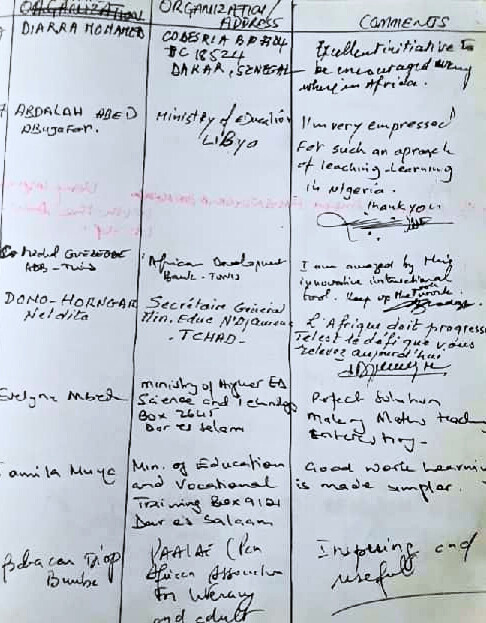 ORGANIZATION
ORGANIZATION/
ADDRESS
COMMENTS
DIARRA MOHAMED
CODESRIA BP
18524
DAKAR, SENEGAL
Excellent initiative to
be encouraged every
where in Africa.
ABDALAH ABED
ABujafar.
Ministry of Education
LiBya
I'm very empressed
For such an aproach
of teaching-learning
in Nigeria.
Thank you.
ADB-Tunis
African Development
Bank-TUNIS
I am amazed by this
innovative instructional
tool. Keep up the work.
DONO-HORNGAR
Neldita
Secrétaire Général
Min. Educ N'Djamena
-TCHAD-
L'Afrique doit progresser
Tel est le défi que vous
relevez aujourd'hui
Evelyne
ministry of Higher ED
Science and Technology
Box 2645
Dar es Salam
Perfect Solution
Making Maths teaching
Entersting-
Min. of Education
and Vocational
Training Box 9121
Dar es Salaam
Good work Learning
is made simpler.
Babacar Diop
Bumba
PAALAE (Pan
African Association
For literacy
and adult
Inspiring and
useful